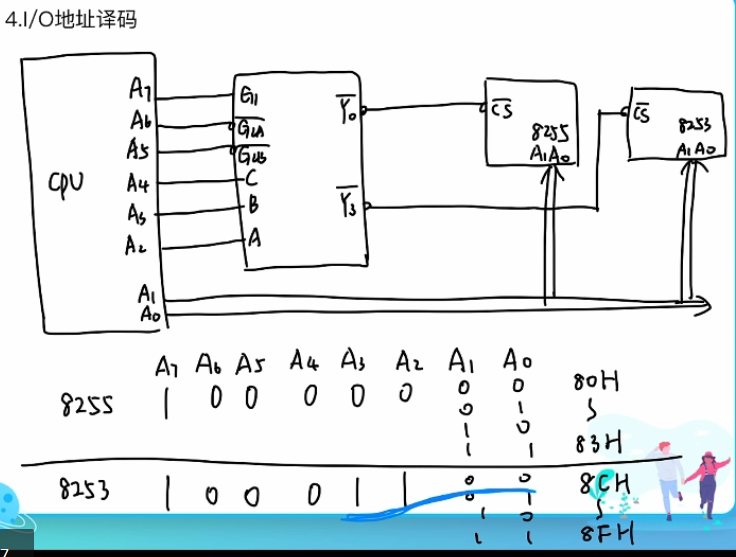 4.I/O地址译码
CPU
A7
A6
A5
A4
A3
A2
A1
A0
G1
G2A
G2B
C
B
A
Y0
Y3
CS
8255
A1A0
CS
8253
A1A0
A7 A6 A5 A4 A3 A2 A1 A0
8255 1 0 0 0 0 0 0 0 80H
0 1
1 0
1 1 83H
8253 1 0 0 0 1 1 0 0 8CH
0 1
1 0
1 1 8FH
7